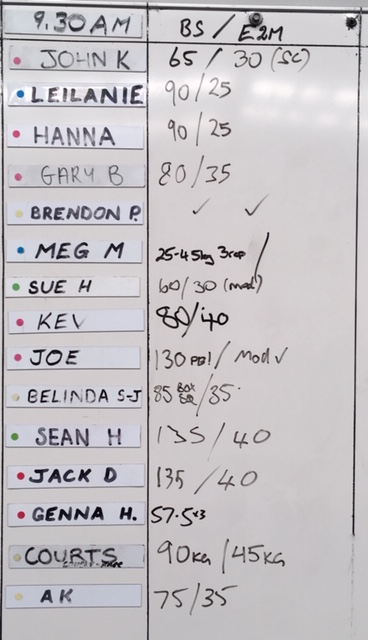 9.30AM BS / E2M
JOHN K 65 / 30 (SC)
LEILANIE 90/25
HANNA 90/25
GARY B 80/35
BRENDON P. ✓ ✓
MEG M 25-45kg 3rep /
SUE H 60/30 (mod)
KEV 80/40
JOE 130 PB! / Mod ✓
BELINDA S-J 85 BOX SQ /35
SEAN H 135 / 40
JACK D 135 / 40
GENNA H. 57.5x3
COURTS 90KG /45KG
AK 75/35